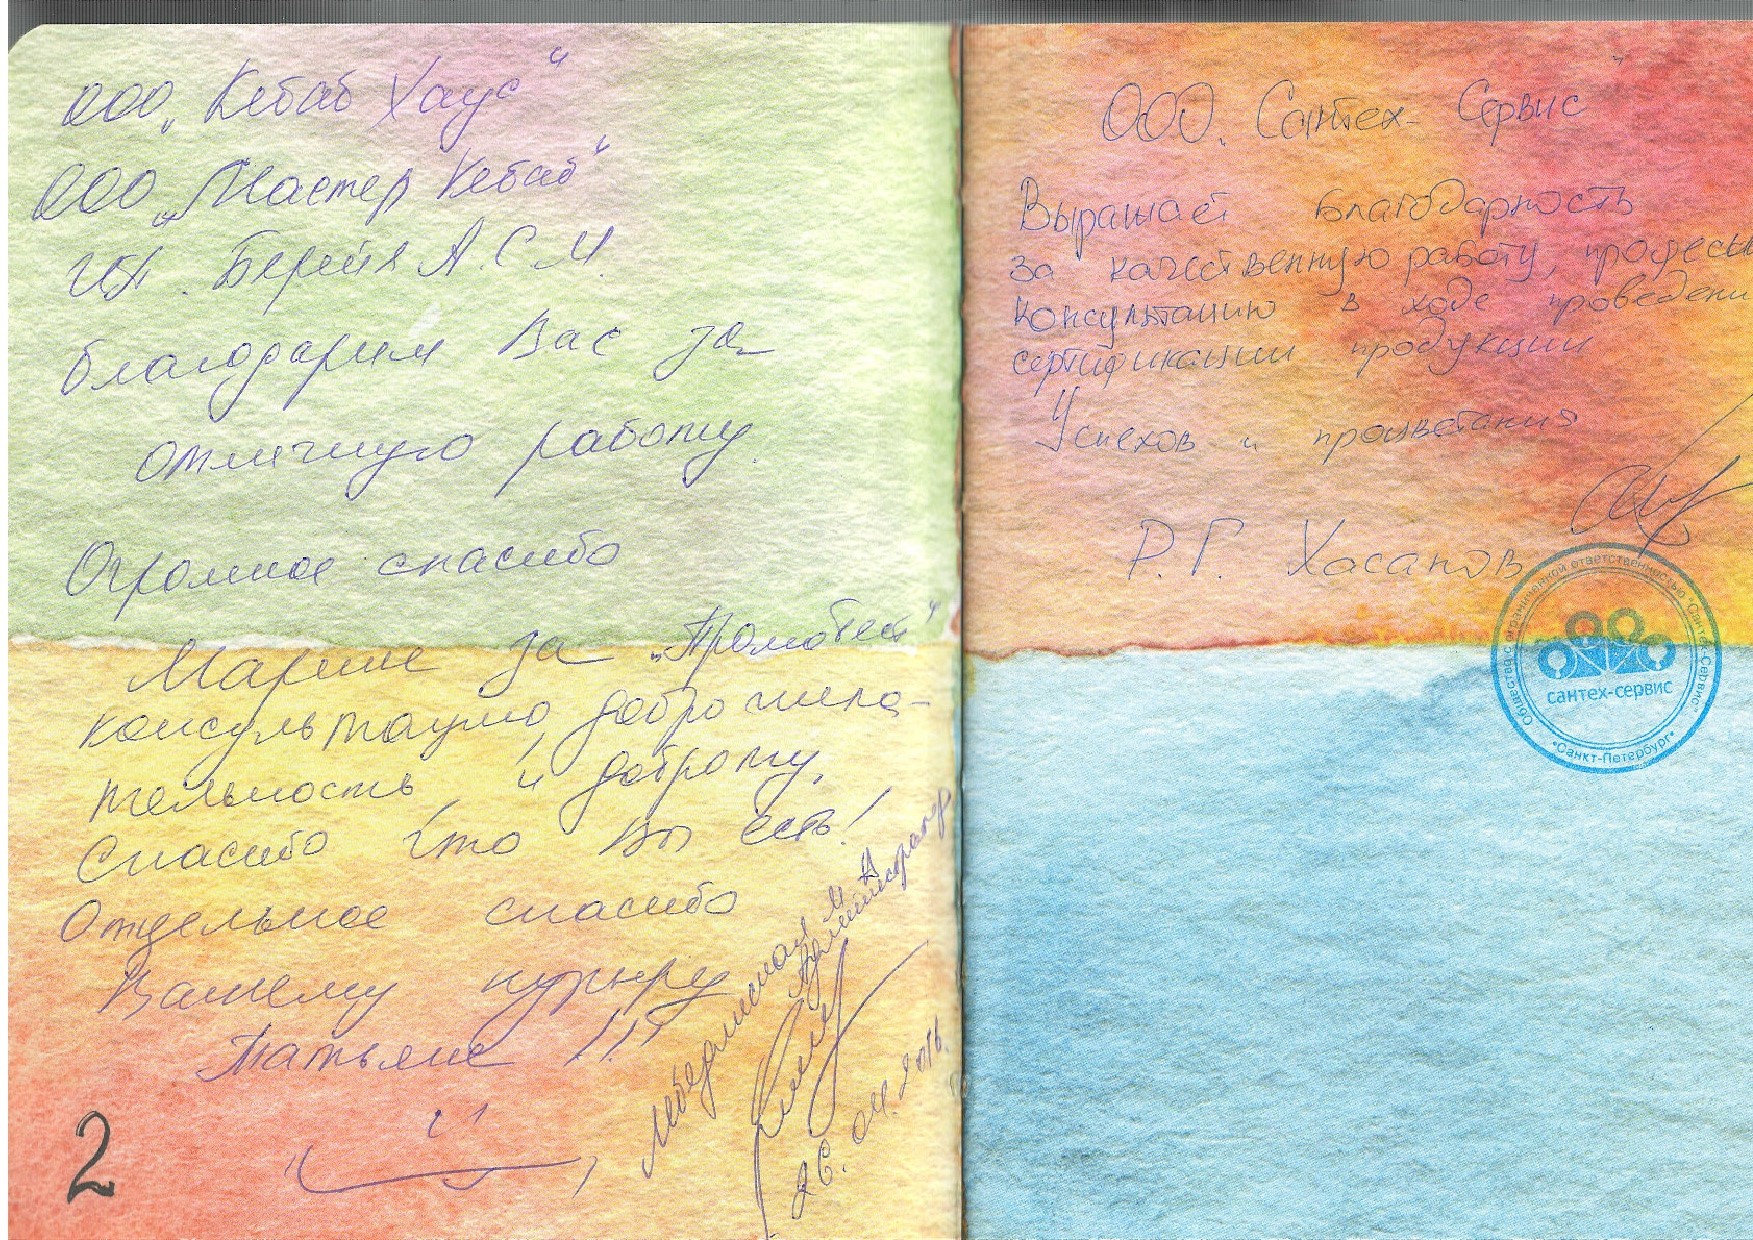 ООО „Кебаб Хаус“
ООО „Мастер Кебаб“
ИП. Берейя А.С.М.
благодарим Вас за
отличную работу.
Огромное спасибо
Марине за „Промотест“
консультацию, доброжела-
тельность и доброту.
Спасибо что Вы есть!
Отдельное спасибо
Вашему курьеру
Татьяне !!!
Администратор
26.04.2016.
2
ООО „Сантех-Сервис“
Выражает благодарность
за качественную работу,
консультацию в ходе
сертификации продукции
Успехов и процветания
Р.Г. Хасанов
Общество с ограниченной ответственностью "Сантех-Сервис"
сантех-сервис
*Санкт-Петербург*